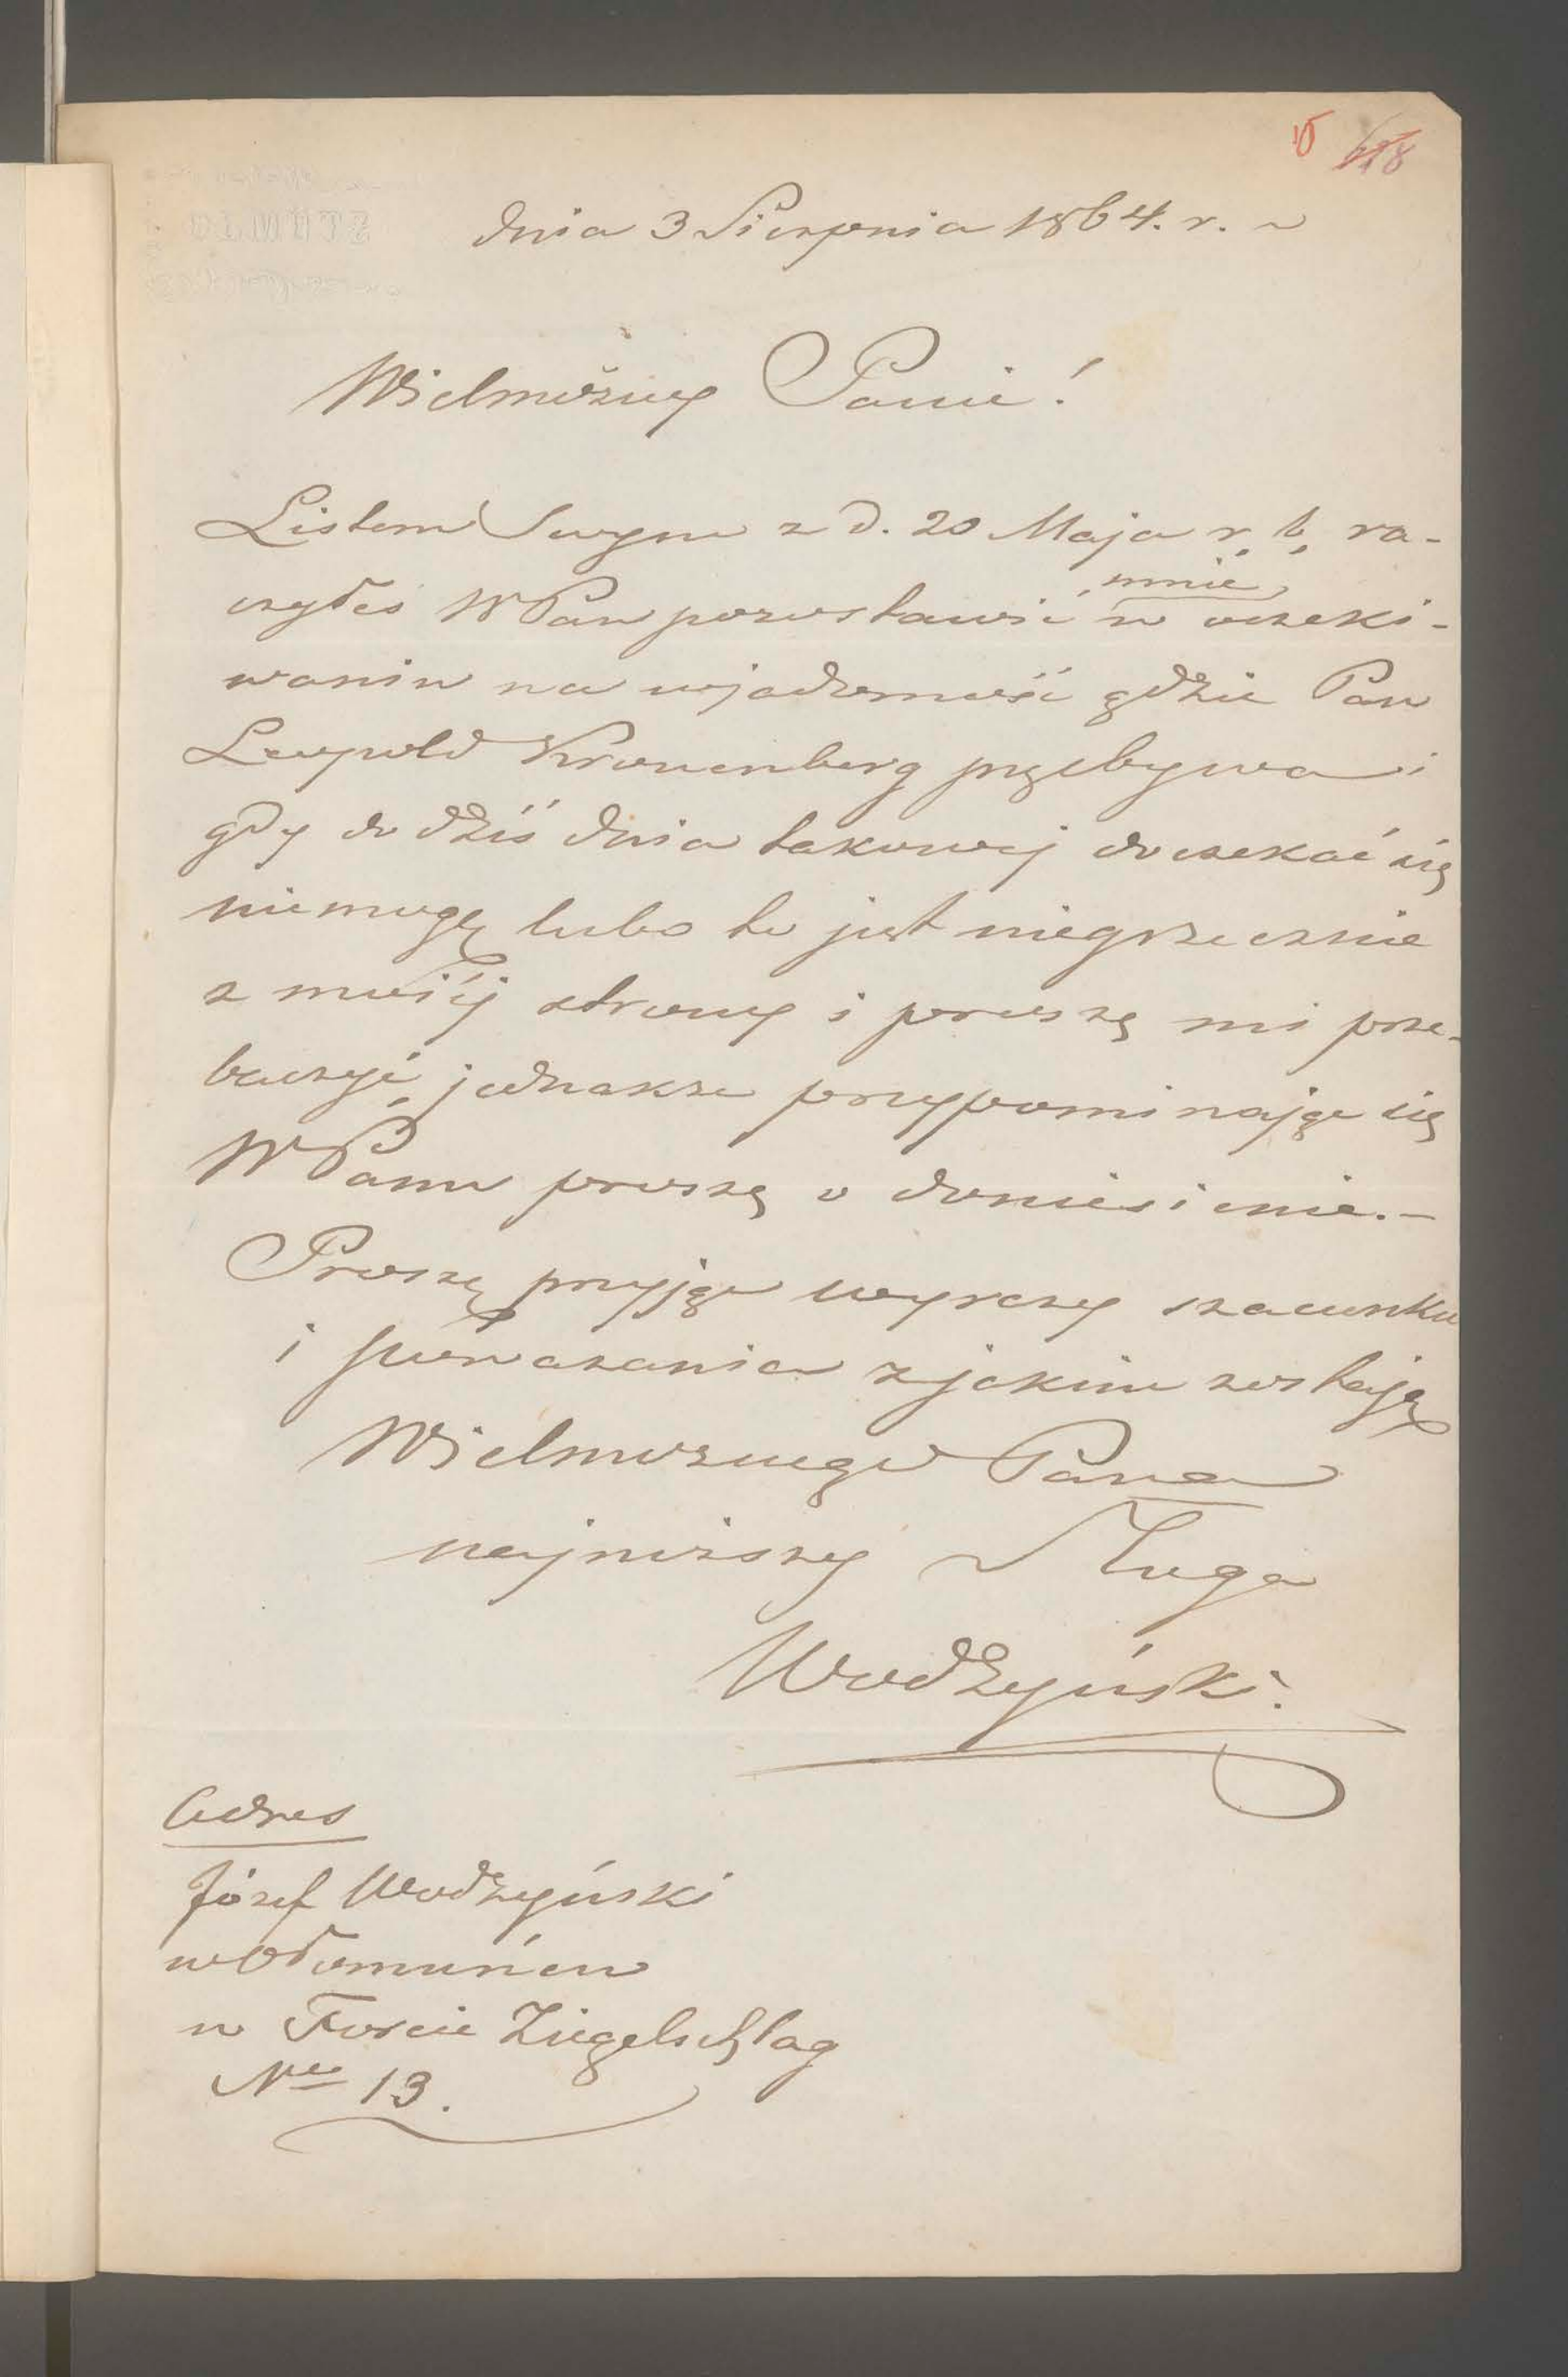 OLMÜTZ
dnia 3 Sierpnia 1864. r.
Wielmożny Panie!
Listem Swym z d. 20 Maja r. b. ra-
czyłeś WPan pozostawić mnie w oczeki-
waniu na wiadomość gdzie Pan
Leopold Kronenberg przebywa i
gdy do dziś dnia takowej doczekać się
niemogę lubo to jest niegrzecznie
z mojéj strony i proszę mi prze-
baczyć, jednakże przypominając się
WPanu proszę o doniesienie.-
Proszę przyjąć wyrazy szacunku
i poważania z jakim zostaję
Wielmożnego Pana
najniższy Sługa
Wodzyński.
Adres
Józef Wodzyński
w Ołomuńcu
w Forcie Ziegelschlag
Nro 13.